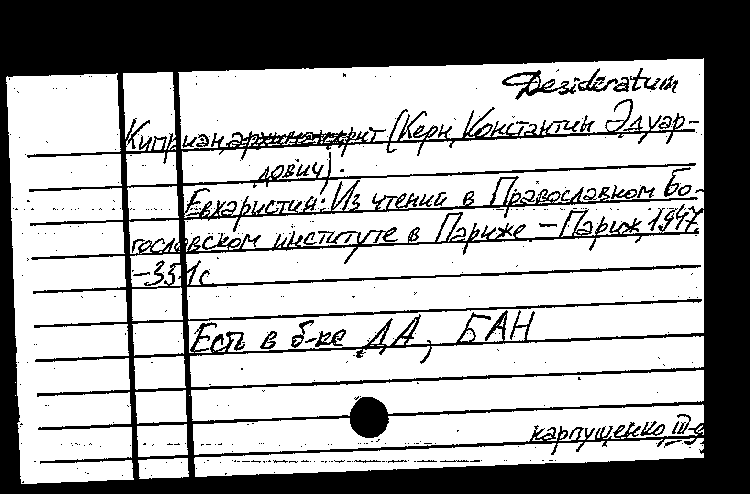 Desideratum
Киприан, архимандрит (Керн, Константин Эдуар-
дович).
Евхаристия: Из чтений в Православном Бо-
гословском институте в Париже. – Париж, 1947.
– 351 с.
Есть в б-ке ДА, БАН
Карпущенко, III-